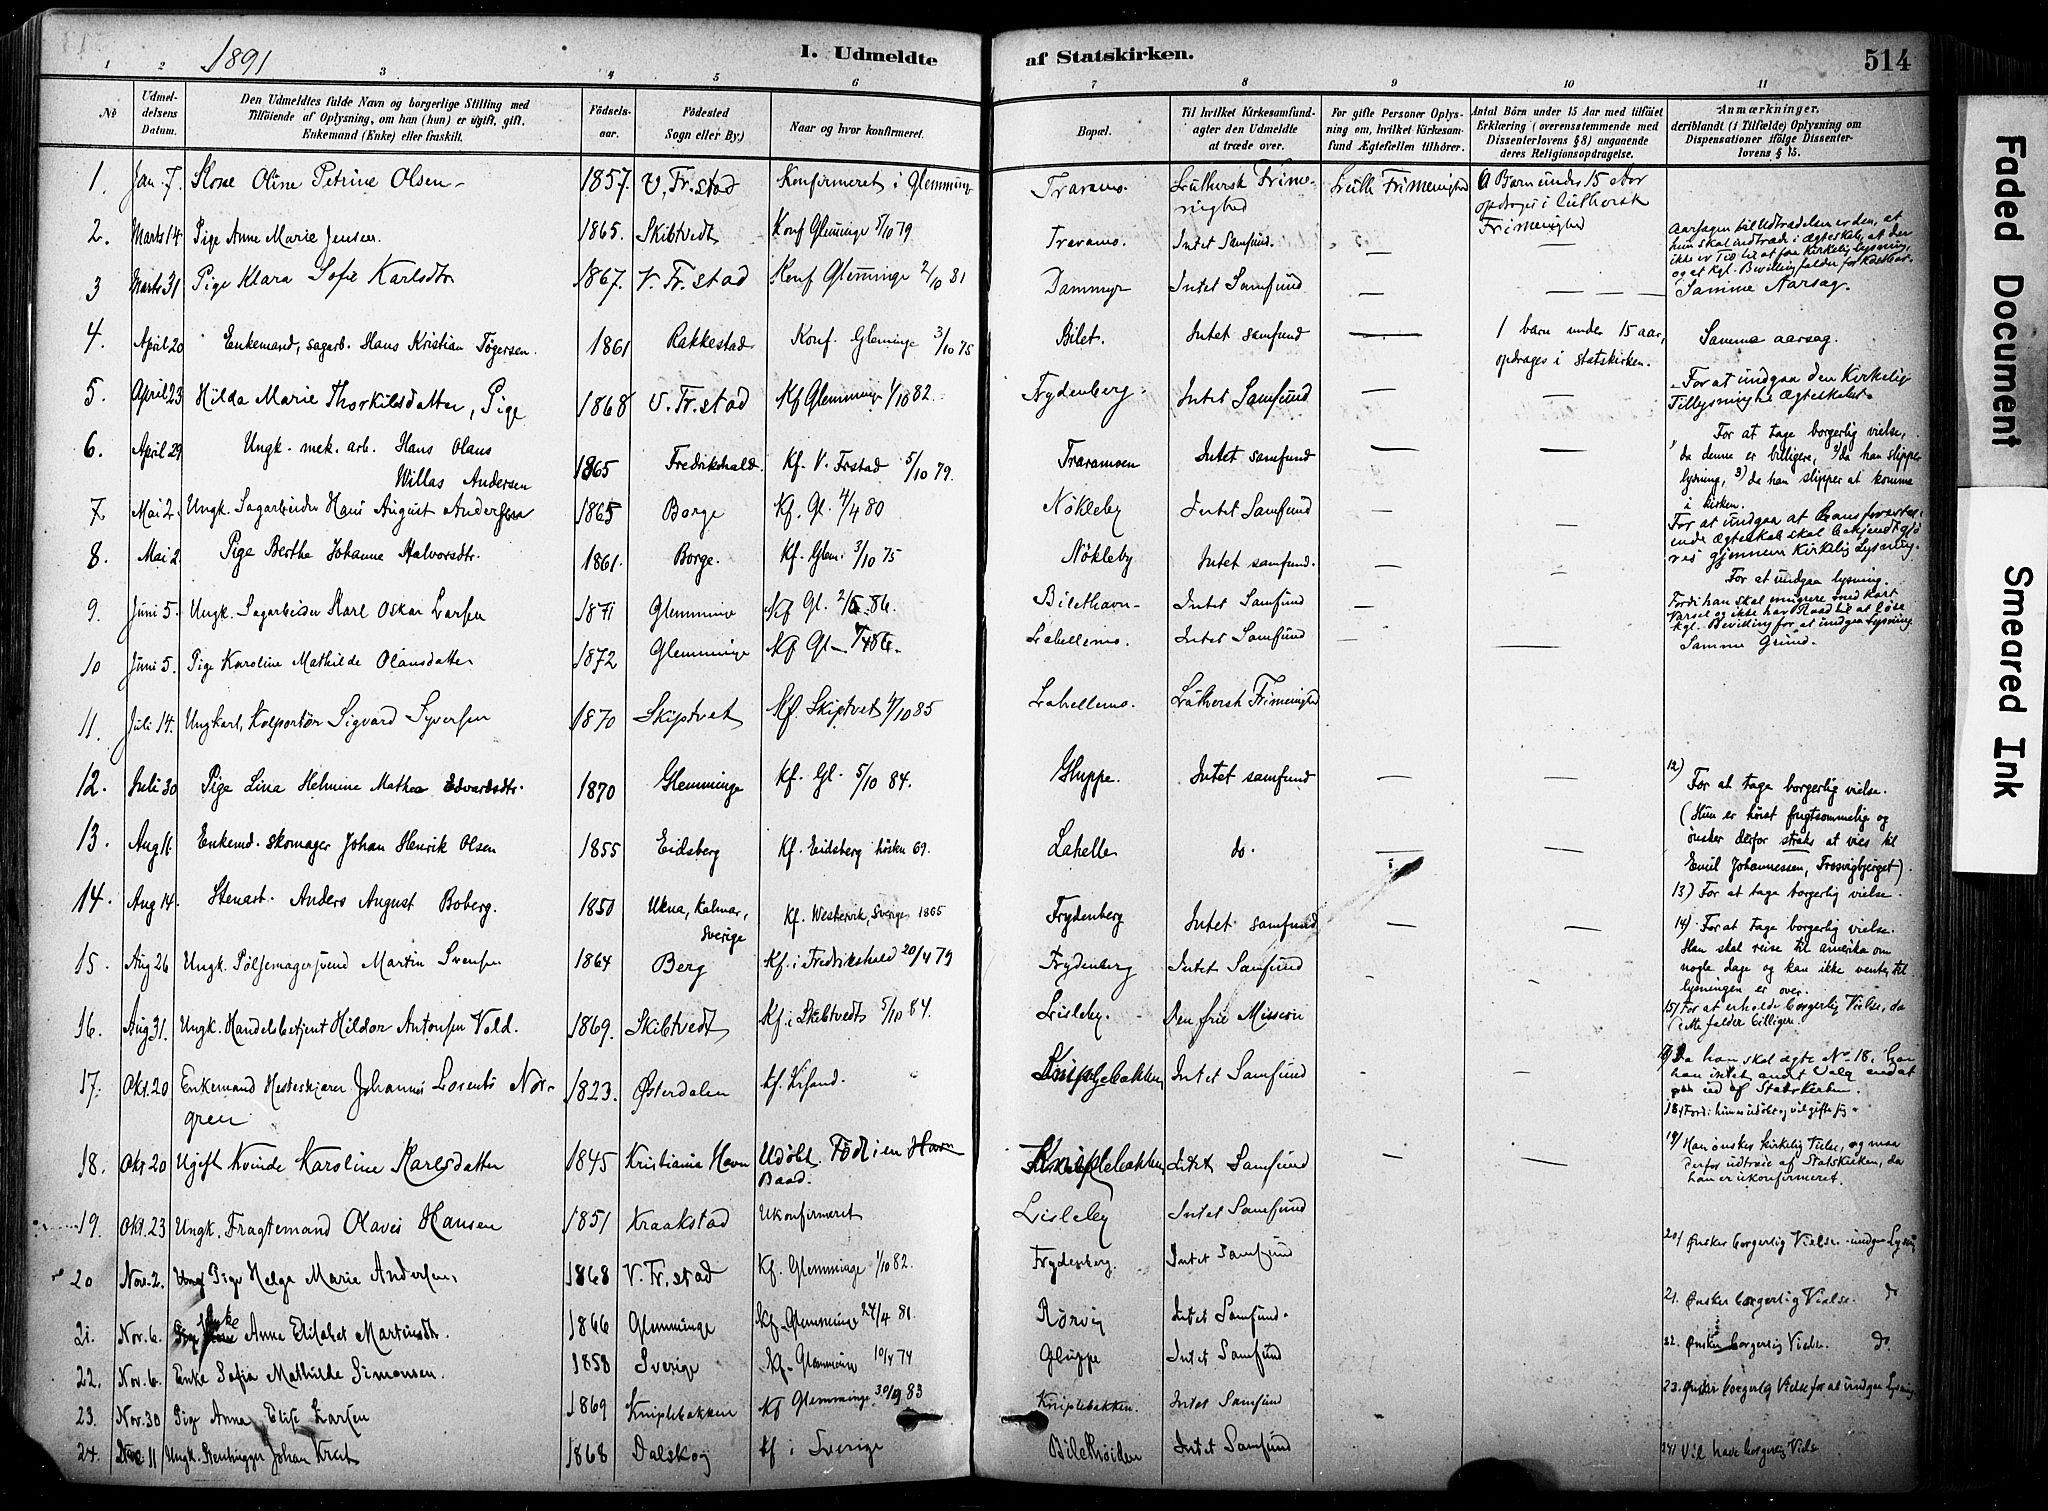 1891
I. Udmeldte af Statskirken.
514
1 2 3 4 5 6 7 8 9 10 11
No
Udmel-
delsens
Datum.
Den Udmeldtes fulde Navn og borgerlige Stilling med
Tilföiende af Oplysning, om han (hun) er ugift, gift,
Enkemand (Enke) eller fraskilt.
Födsels-
aar.
Födested
Sogn eller By.)
Naar og hvor konfirmeret.
Bopæl.
Til hvilket Kirkesamfund
agter den Udmeldte
at træde over.
For gifte Personer Oplys-
ning om, hvilket Kirkesam-
fund Ægtefællen tilhörer.
Antal Börn under 15 Aar med tilföiet
Erklæring (overensstemmende med
Dissenterlovens § 8) angaaende
deres Religionsopdragelse.
Anmærkninger,
deriblandt (i Tilfælde) Oplysning om
Dispensationer ifölge Dissenter-
lovens § 15.
1. Jan 7. Kone Oline Petrine Olsen 1857. V. Fr.stad Konfirmeret i Glemminge Traramo. Luthersk Frime-
nighed Luth Frimenighed 6 Barn under 15 Aar
opdrages i Luthersk
Frimenighed
2. Marts 14 Pige Anne Marie Jensen. 1865. Skibtvedt Konf Glemminge 5/10 79 Traramo. Intet Samfund. — — Aarsagen til Udtrædelsen er den, at
hun skal indtræde i Ægteskab, at der
ikke er Tid til at faa Kirkelig Lysning,
og at Kgl. Bevilling falder for kostbar.
3 Marts 31 Pige Klara Sofie Karlsdtr 1867. V. Fr. stad Konf Glemminge 2/10 81 Dammyr Intet Samfund — — Samme Aarsag.
4. April 20 Enkemand, sagarb. Hans Kristian Tögersen. 1861 Rakkestad Konf. Glemminge 3/10 75 Bilet. Intet samfund — 1 barn under 15 aar,
opdrages i statskirken. Samme aarsag.
5. April 23 Hilda Marie Thorkilsdatter, Pige 1868 V. Fr.stad Kf Glemminge 1/10 82. Frydenberg. Intet Samfund — — For at undgaa den Kirkelig
Tillysning til Ægteskabet.
6. April 29 Ungk. mek. arb. Hans Olaus
Willas Andersen 1865 Fredrikshald. Kf. V. Frstad 5/10 79. Traramoen Intet samfund — — For at tage borgerlig vielse,
da denne er billigere, da han slipper
lysning, 3) da han slipper at komme
i kirken.
7. Mai 2. Ungk. Sagarbeider Hans August Andersen 1865 Borge Kf. Gl. 4/4 80 Nökleby Intet Samfund — — For at undgaa at hans forestaa-
ende Ægteskab skal bekjendtgjö
res gjennem Kirkelig Lysning.
8. Mai 2. Pige Berthe Johanne Halvorsdtr. 1861. Borge. Kf. Glem. 3/10 75 Nökleby Intet samfund. — — For at undgaa lysning.
9. Juni 5. Ungk. Sagarbeider Karl Oskar Larsen 1871 Glemminge Kf Gl. 2/5 86. Bilethavn Intet Samfund — Fordi han skal emigrere med kort
Varsel og ikke har Raad til at löse
Kgl. Bevilling for at undgaa Lysning
10 Juni 5. Pige Karoline Mathilde Olausdatter 1872 Glemminge Kf Gl Lahellemo. Intet Samfund — — Samme Grund.
11. Juli 14. Ungkarl, Kolportör Sigvard Syversen 1870 Skiptvet Kf. Skiptvet 4/10 85 Lahellemo. Luthersk Frimenighed
12. Juli 30 Pige Lina Helmine Mathea Edvardsdtr. 1870 Glemminge Kf. Gl. 5/10 84. Gluppe. Intet samfund — — 12) For at tage borgerlig vielse.
(Hun er höist frugtsommelig og
ønsker derfor straks at vies til
Emil Johannessen, Trosvigbjerget)
13. Aug 11. Enkemd. skomager Johan Henrik Olsen 1855 Eidsberg Kf. Eidsberg hösten 69. Lahelle do. — — 13) For at tage borgerlig vielse.
14. Aug 14. Stenarb. Anders August Boberg. 1850 Ukna, Kalmar,
Sverige Kf. Westervik, Sverige 1865 Frydenberg Intet samfund — — 14) For at tage borgerlig vielse.
Han skal reise til Amerika om
nogle dage og kan ikke vente, til
lysningen er over.
15. Aug 26 Ungk. Pölsemagersvend Martin Svensen 1864 Berg Kf. i Fredrikshald 20/4 79 Frydenberg Intet Samfund - - 15/ For at erholde borgerlig Vielse, da
dette falder billigere.
16. Aug 31. Ungk. Handelsbetjent Hildor Antonsen Vold. 1869. Skibtvedt Kf. i Skibtvedt 5/10 84. Lisleby. Den frie Mission
17. Okt. 20 Enkemand Hesteskjærer Johannes Lorents Nor-
gren 1823. Østerdalen kf. Kisand. Kniplebakken Intet Samfund - - 17) Da han skal ægte No 18, har
han intet andet Valg end at
gaa ud af Statskirken.
18. Okt 20 Ugift Kvinde Karoline Karlsdatter 1845 Kristiania Havn Udöbt. Född i en Havn
Baad. Kniplebakken Intet Samfund — — 18/ Fordi hun er udöbt og vil gifte sig.
19. Okt. 23 Ungk. Fragtemand Olaves Hansen 1851 Kraakstad Ukonfirmeret Lisleby Intet Samfund 19/ Han önskes kirkelig Vielse, og maa
derfor udtræde af Statskirken, da
han er ukonfirmeret.
20 Nov. 2. Pige Helga Marie Andersen, 1868 V. Fr. stad Kf. Glemminge 1/10 82. Frydenberg. Intet Samfund 20/ Ønsker borgerlig Vielse undgaa Lysn
21. Nov. 6. Enke Anna Elisabet Martinsdtr. 1866 Glemminge Kf. Glemminge 24/4 81. Rörvig Intet Samfund. 21. Ønsker borgerlig Vielse. do
22. Nov. 6. Enke Sofia Mathilde Simonsen. 1858 Sverige Kf. Glemminge 10/4 74 Gluppe Intet Samfund 22. Ønsker borgerlig Vielse. do.
23. Nov. 30 Pige Anna Elise Larsen 1869 Kniplebakken Kf Glemminge 30/9 83 Kniplebakken. Intet Samfund 23. Ønsker borgerlig Vielse for at undgaa Lysning
24. 11 Ungk. Stenhugger Johan 1868 Dalskog Kf i Sverige Intet Samfund 24/ Vil have borgerlig Vielse
Faded Document
Smeared Ink